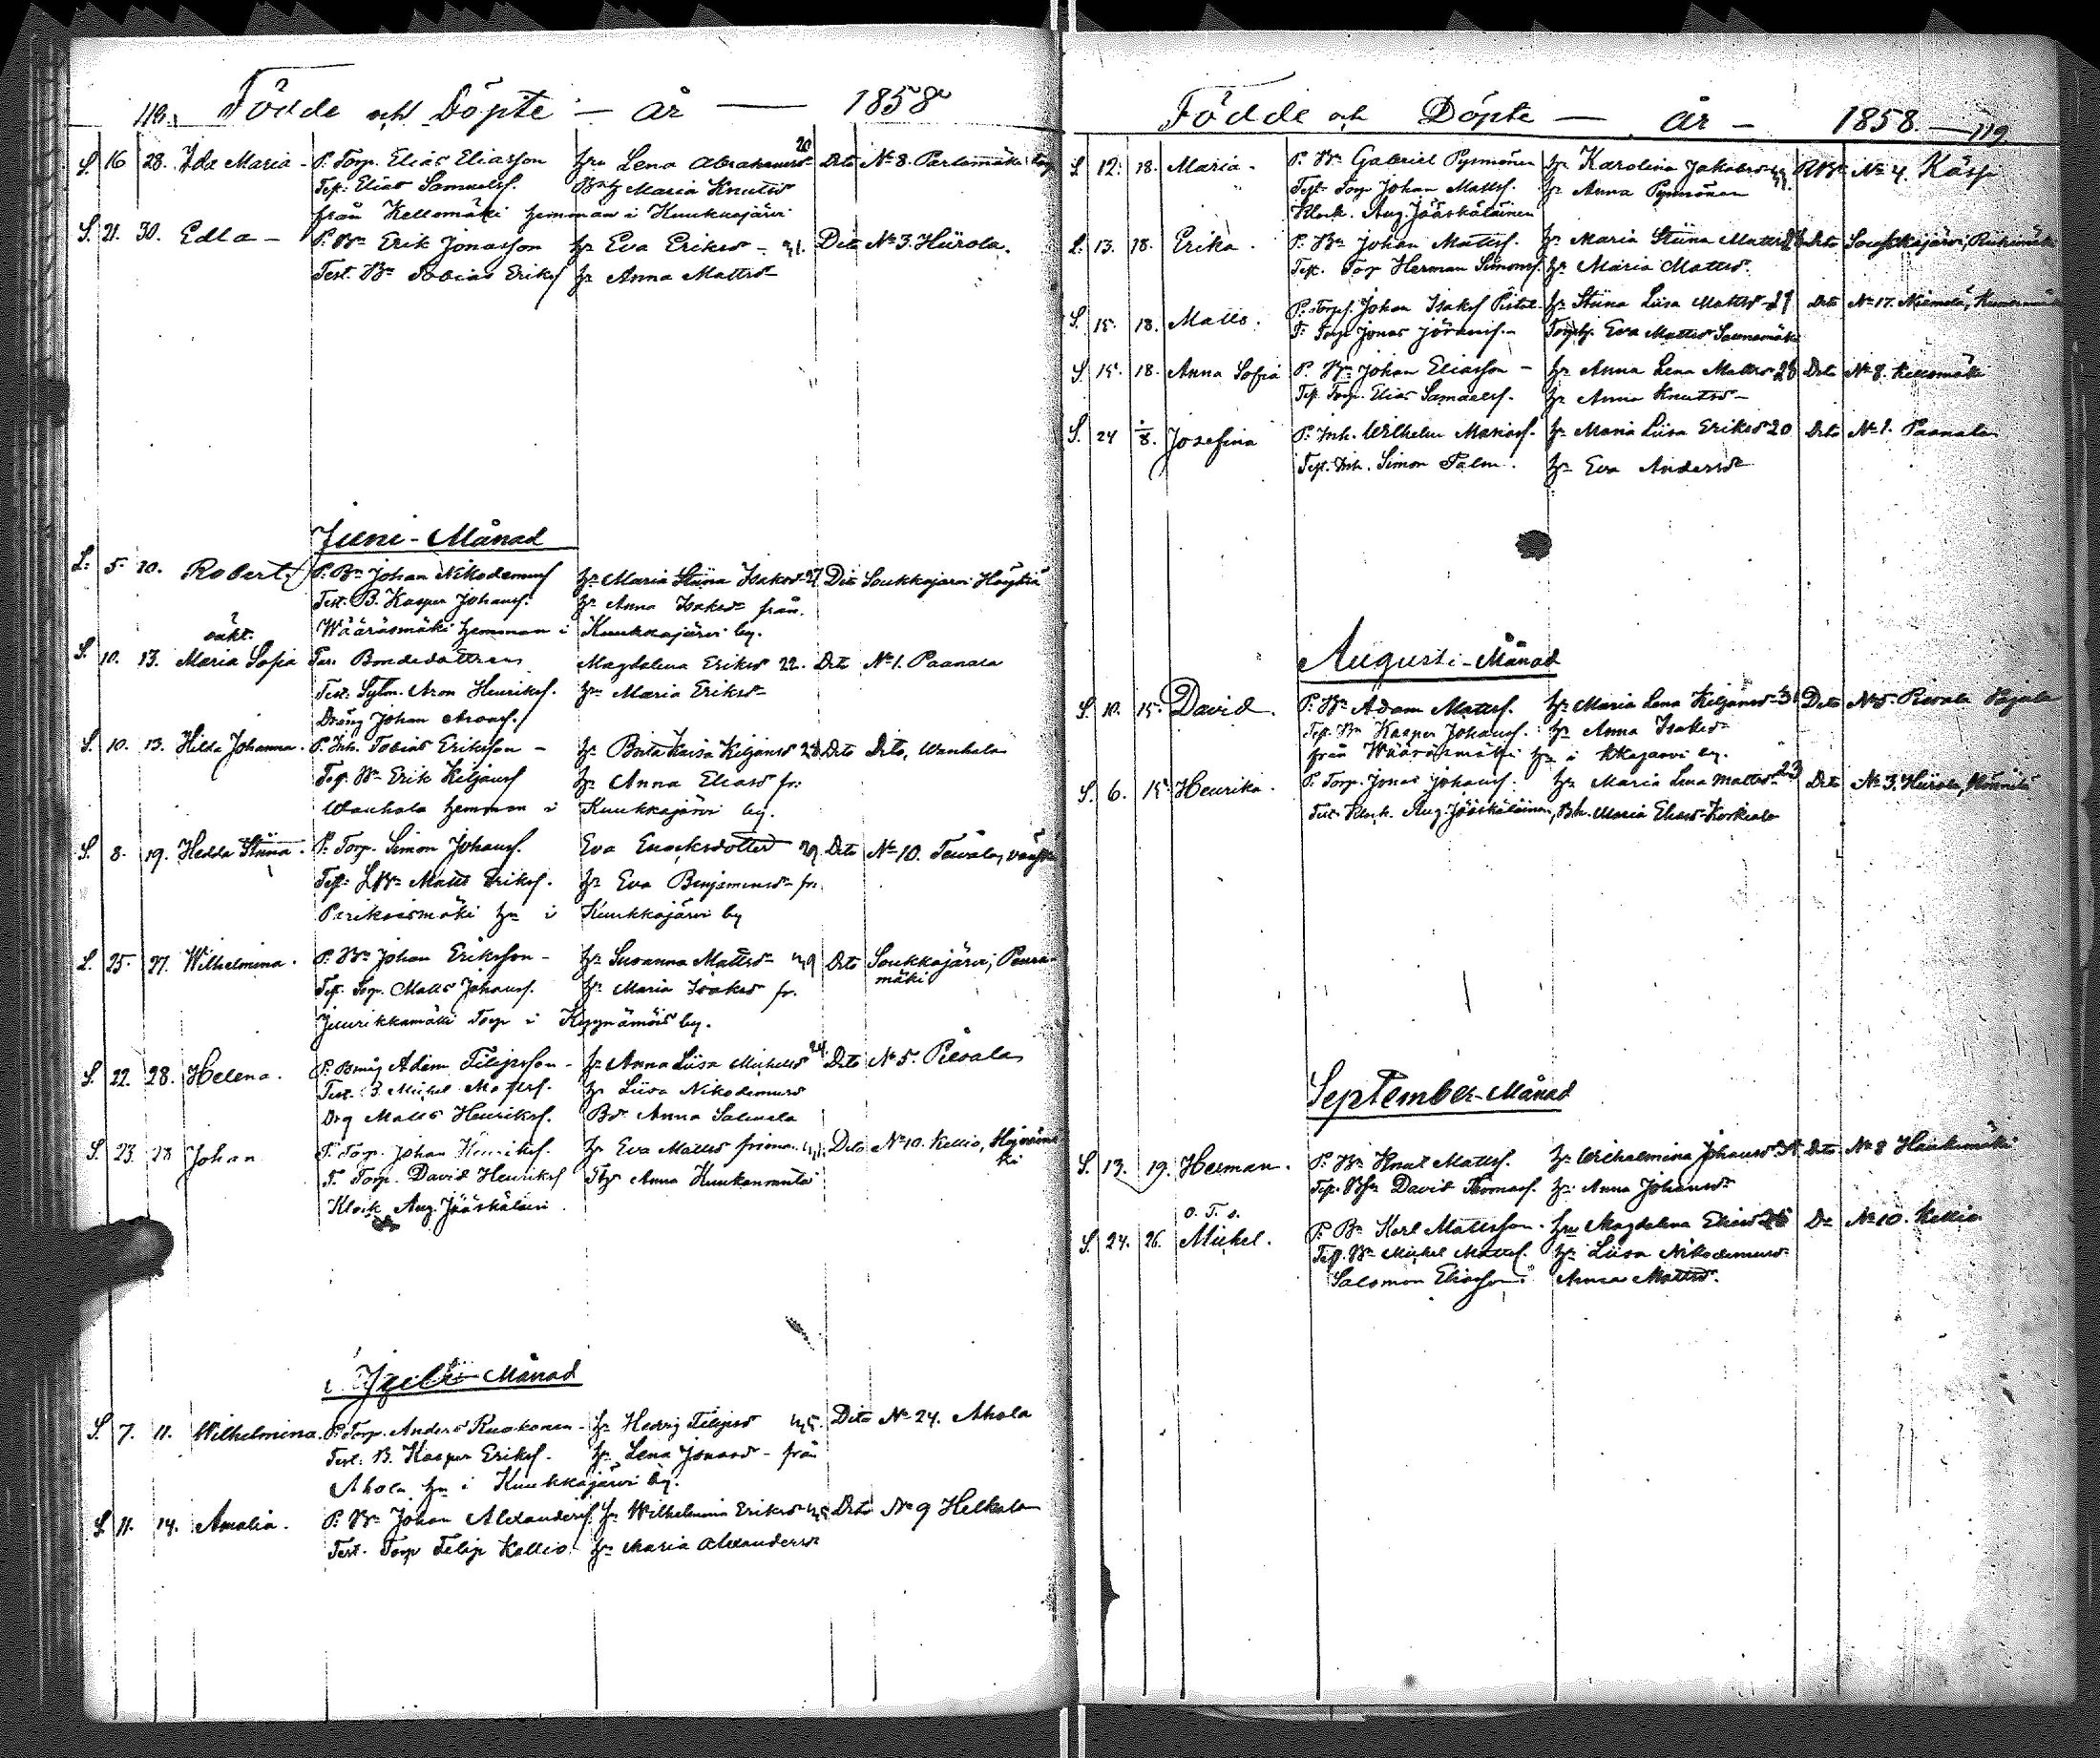 118. Födde och Döpte - år - 1858
S. 16 28. Ida Maria - P. Torp. Elias Eliasson hu Lena Abrahamsd 20 Dito No 8. Parlamäki torp
Test: Elias Samuelss. Maria Knutsd
från Kellomäki hemman i Kuukkajärvi
S. 21. 30. Edla - P. Bn Erik Jonasson hu Eva Eriksd - 31. Dito No 3. Hiirola.
Test. Bn Tobias Erikss hu Anna Mattsd
Juni - Månad
L. 5 10. Robert P. Bn Johan Nikodemuss hu Maria Stiina Isaksd 27 Dito Soukkajärvi
Test. B. Kasper Johanss. hu Anna Isaksd från
Wäärämäki hemman i Kuukkajärvi by.
oäkt.
S. 10. 13. Maria Sofia Bondedottren Magdalena Eriksd 22. Dito No 1. Paanala
Test. Sytn. Aron Henrikss. hu Maria Eriksd
Dräng Johan Aronss.
S. 10. 13. Hilda Johanna. P. Inh. Tobias Eriksson - hu Brita Kaisa Kiljansd 28 Dito Dito, Wanhala
Test Bn Erik Kiljanss hu Anna Eliasd fr.
Wanhala hemman i Kuukkajärvi by.
S. 8. 19. Hedda Stiina. P. Torp. Simon Johanss. Eva Enocksdotter 29 Dito No 10. Teivala,
Test. Bn Matts Erikss. hu Eva Benjaminsd fr.
hn i Kuukkajärvi by
L. 25. 27. Wilhelmina. P. Bn Johan Eriksson - hu Susanna Mattsd 49 Dito Soukkajärvi, Peura-
mäki
Test. Torp. Matts Johanss. hu Maria Isaksd fr.
Juurikkamäki Torp i by.
S. 22. 28. Helena. P. Adam Filipsson - hu Anna Liisa Michelsd 24 Dito No 5. Piilola
Test. B. Michel hu Liisa Nikodemusd
Drg Matts Henrikss. Anna Salmela
S. 23. 28 Johan P. Torp. Johan Henrikss. hu Eva Mattsd Dito No 10. Kellio,
T. Torp. David Henrikss Anna Kuukanranta
Klock. Aug. Jääskeläinen
Juli - Månad
S. 7. 11. Wilhelmina. P. Torp. Anders Ruokonen - hu Hedvig Filipsd 45. Dito No 24. Ahola
Test: B. Kasper Erikss. hu Lena Jonasd - från
Ahola hn i Kuukkajärvi by.
S. 11. 14. Amalia. P. Bn Johan Alexanderss. hu Wilhelmina Eriksd Dito No 9 Helkala
Test. Torp Filip Kallio. hu Maria Alexandersd
Födde och Döpte - år - 1858. - 119.
L 12. 18. Maria. P. Bn Gabriel Pynnönen hu Karolina Jakobsd No 4 Kässi
Test. Torp Johan Mattss. hu Anna Pynnönen
Klock. Aug. Jääskeläinen
L. 13. 18. Erika. P. Bn Johan Mattss. hu Maria Stiina Mattsd Dito Soukkajärvi,
Test. Torp Herman Simonss. hu Maria Mattsd.
S. 15. 18. Matts. P. Torp. Johan Isakss hu Stiina Liisa Mattsd 29 Dito No 17. Niemelä,
T. Torp Jonas Eva Mattsd
S. 15. 18. Anna Sofia P. Bn Johan Eliasson - hu Anna Lena Mattsd 28 Dito No 8. Kellomäki
Test. Torp. Elias Samuelss. hu Anna Knutsd -
S. 24 1/8. Josefina P. Inh. Wilhelm hu Maria Liisa Eriksd 20 Dito No 1. Paanala
Test. Inh. Simon Palm. hu Eva Andersd
Augusti - Månad
S. 10. 15. David. P. Bn Adam Mattss. hu Maria Lena Kiljansd Dito No 5.
Test. Bn Kasper Johanss. hu Anna Isaksd
från Wäärämäki hn i Kkajärvi by.
S. 6. 15. Henrika. P. Torp. Jonas Johanss. hu Maria Lena Mattsd 23 Dito No 3. Hiirola,
Test. Klock. Aug. Jääskeläinen, Maria Eliasd
September - Månad
S. 13. 19. Herman. P. Bn Knut Mattss. hu Wilhelmina Johansd Dito No 8
Test. David Thomass. hu Anna Johansd
o. T. s.
S. 24. 26. Michel. P. Bn Karl Mattsson. hu Magdalena Eliasd 26 Do No 10. Kellio
Test. Bn Michel Mattss. hu Liisa Nikodemusd
Salomon Eliasson Anna Mattsd.